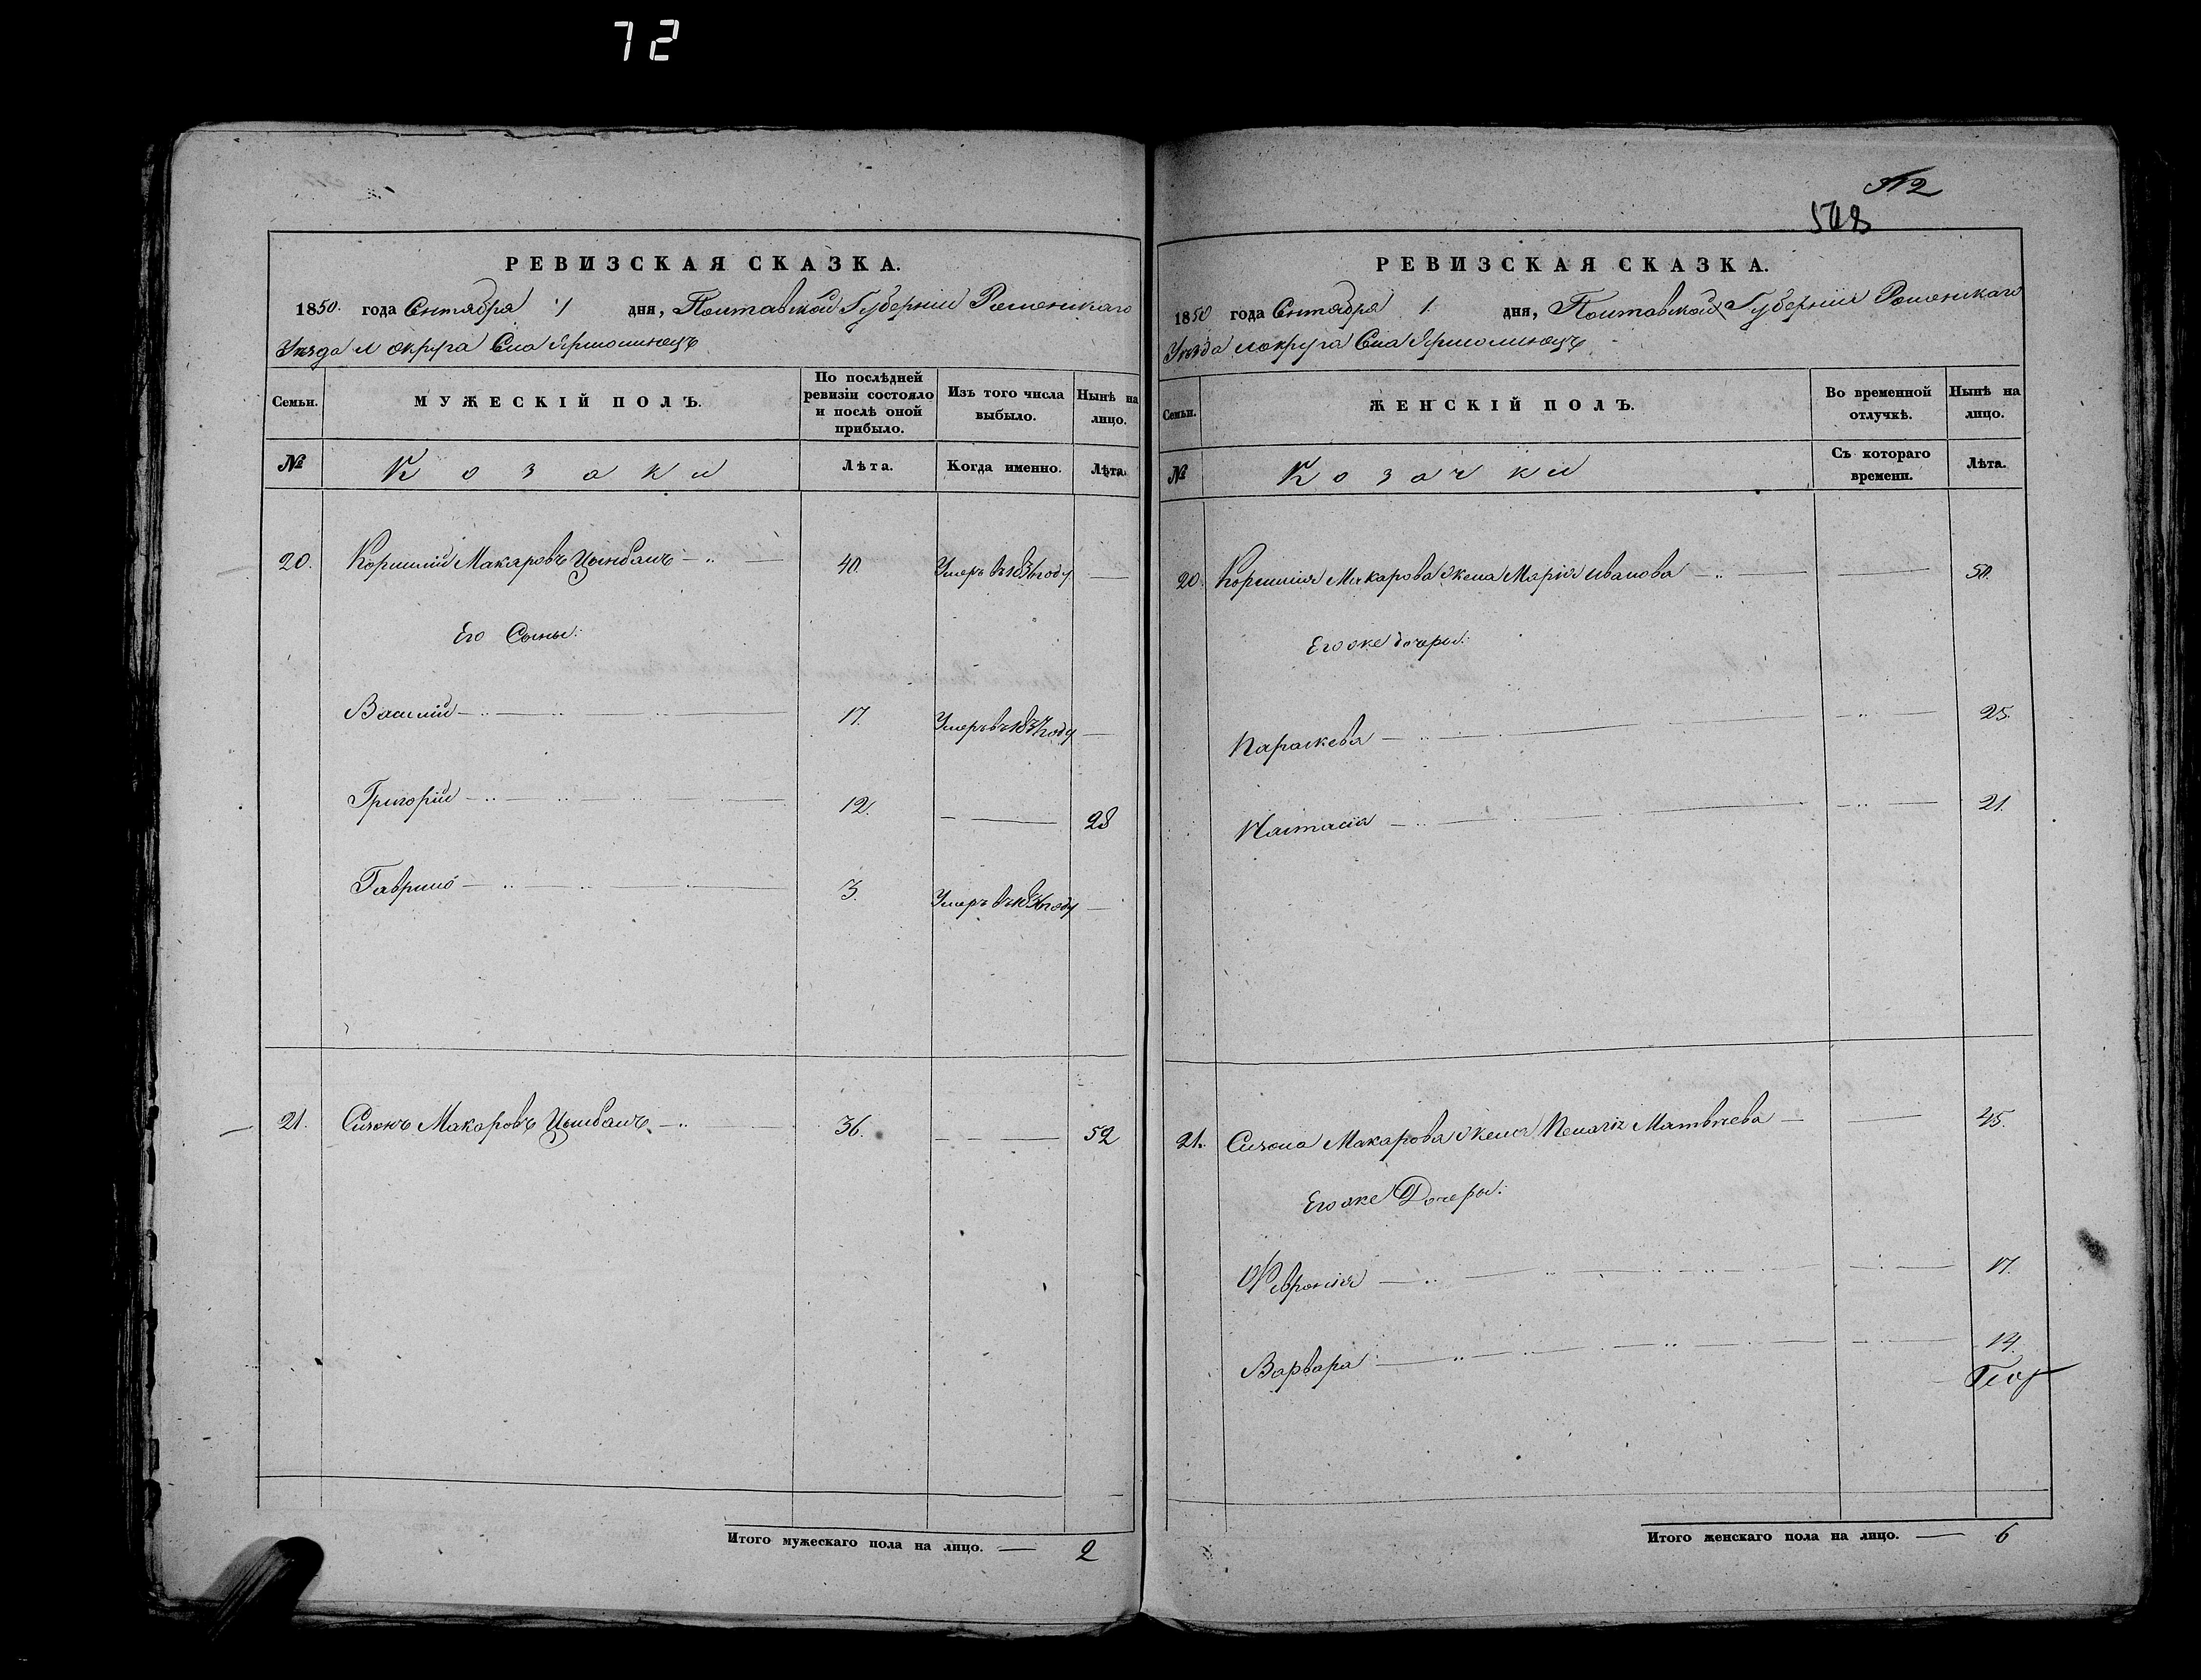 72
512
РЕВИЗСКАЯ СКАЗКА.
1850. года Сентября 1 дня, Полтавской Губерніи Роменскаго
Уѣзда и округа Села Ярмолинецъ
Семьи. МУЖЕСКІЙ ПОЛЪ. По послѣдней ревизіи состояло и послѣ оной прибыло. Изъ того числа выбыло. Нынѣ на лицо.
№ Козаки Лѣта. Когда именно. Лѣта.
20. Корнилій Макаровъ Цымбалъ 40 Умеръ въ 1836 году
Его Сыны:
Василій 17. Умеръ въ 1837 году
Григорій 12. 28
Гаврило 3. Умеръ въ 1836 году
21. Сизонъ Макаровъ Цымбалъ 36. 52
Итого мужескаго пола на лицо. 2
РЕВИЗСКАЯ СКАЗКА.
1850 года Сентября 1. дня, Полтавской Губерніи Роменскаго
Уѣзда и округа Села Ярмолинецъ
Семьи. ЖЕНСКІЙ ПОЛЪ. Во временной отлучкѣ. Нынѣ на лицо.
№ Козачки Съ котораго времени. Лѣта.
20. Корнилія Макарова жена Марія Иванова 50.
Его же дочери:
Параскева 25.
Настасія 21.
21. Сизона Макарова жена Пелагія Матвѣева 45.
Его же Дочери:
Февронія 17.
Варвара 14.
Итого женскаго пола на лицо. 6